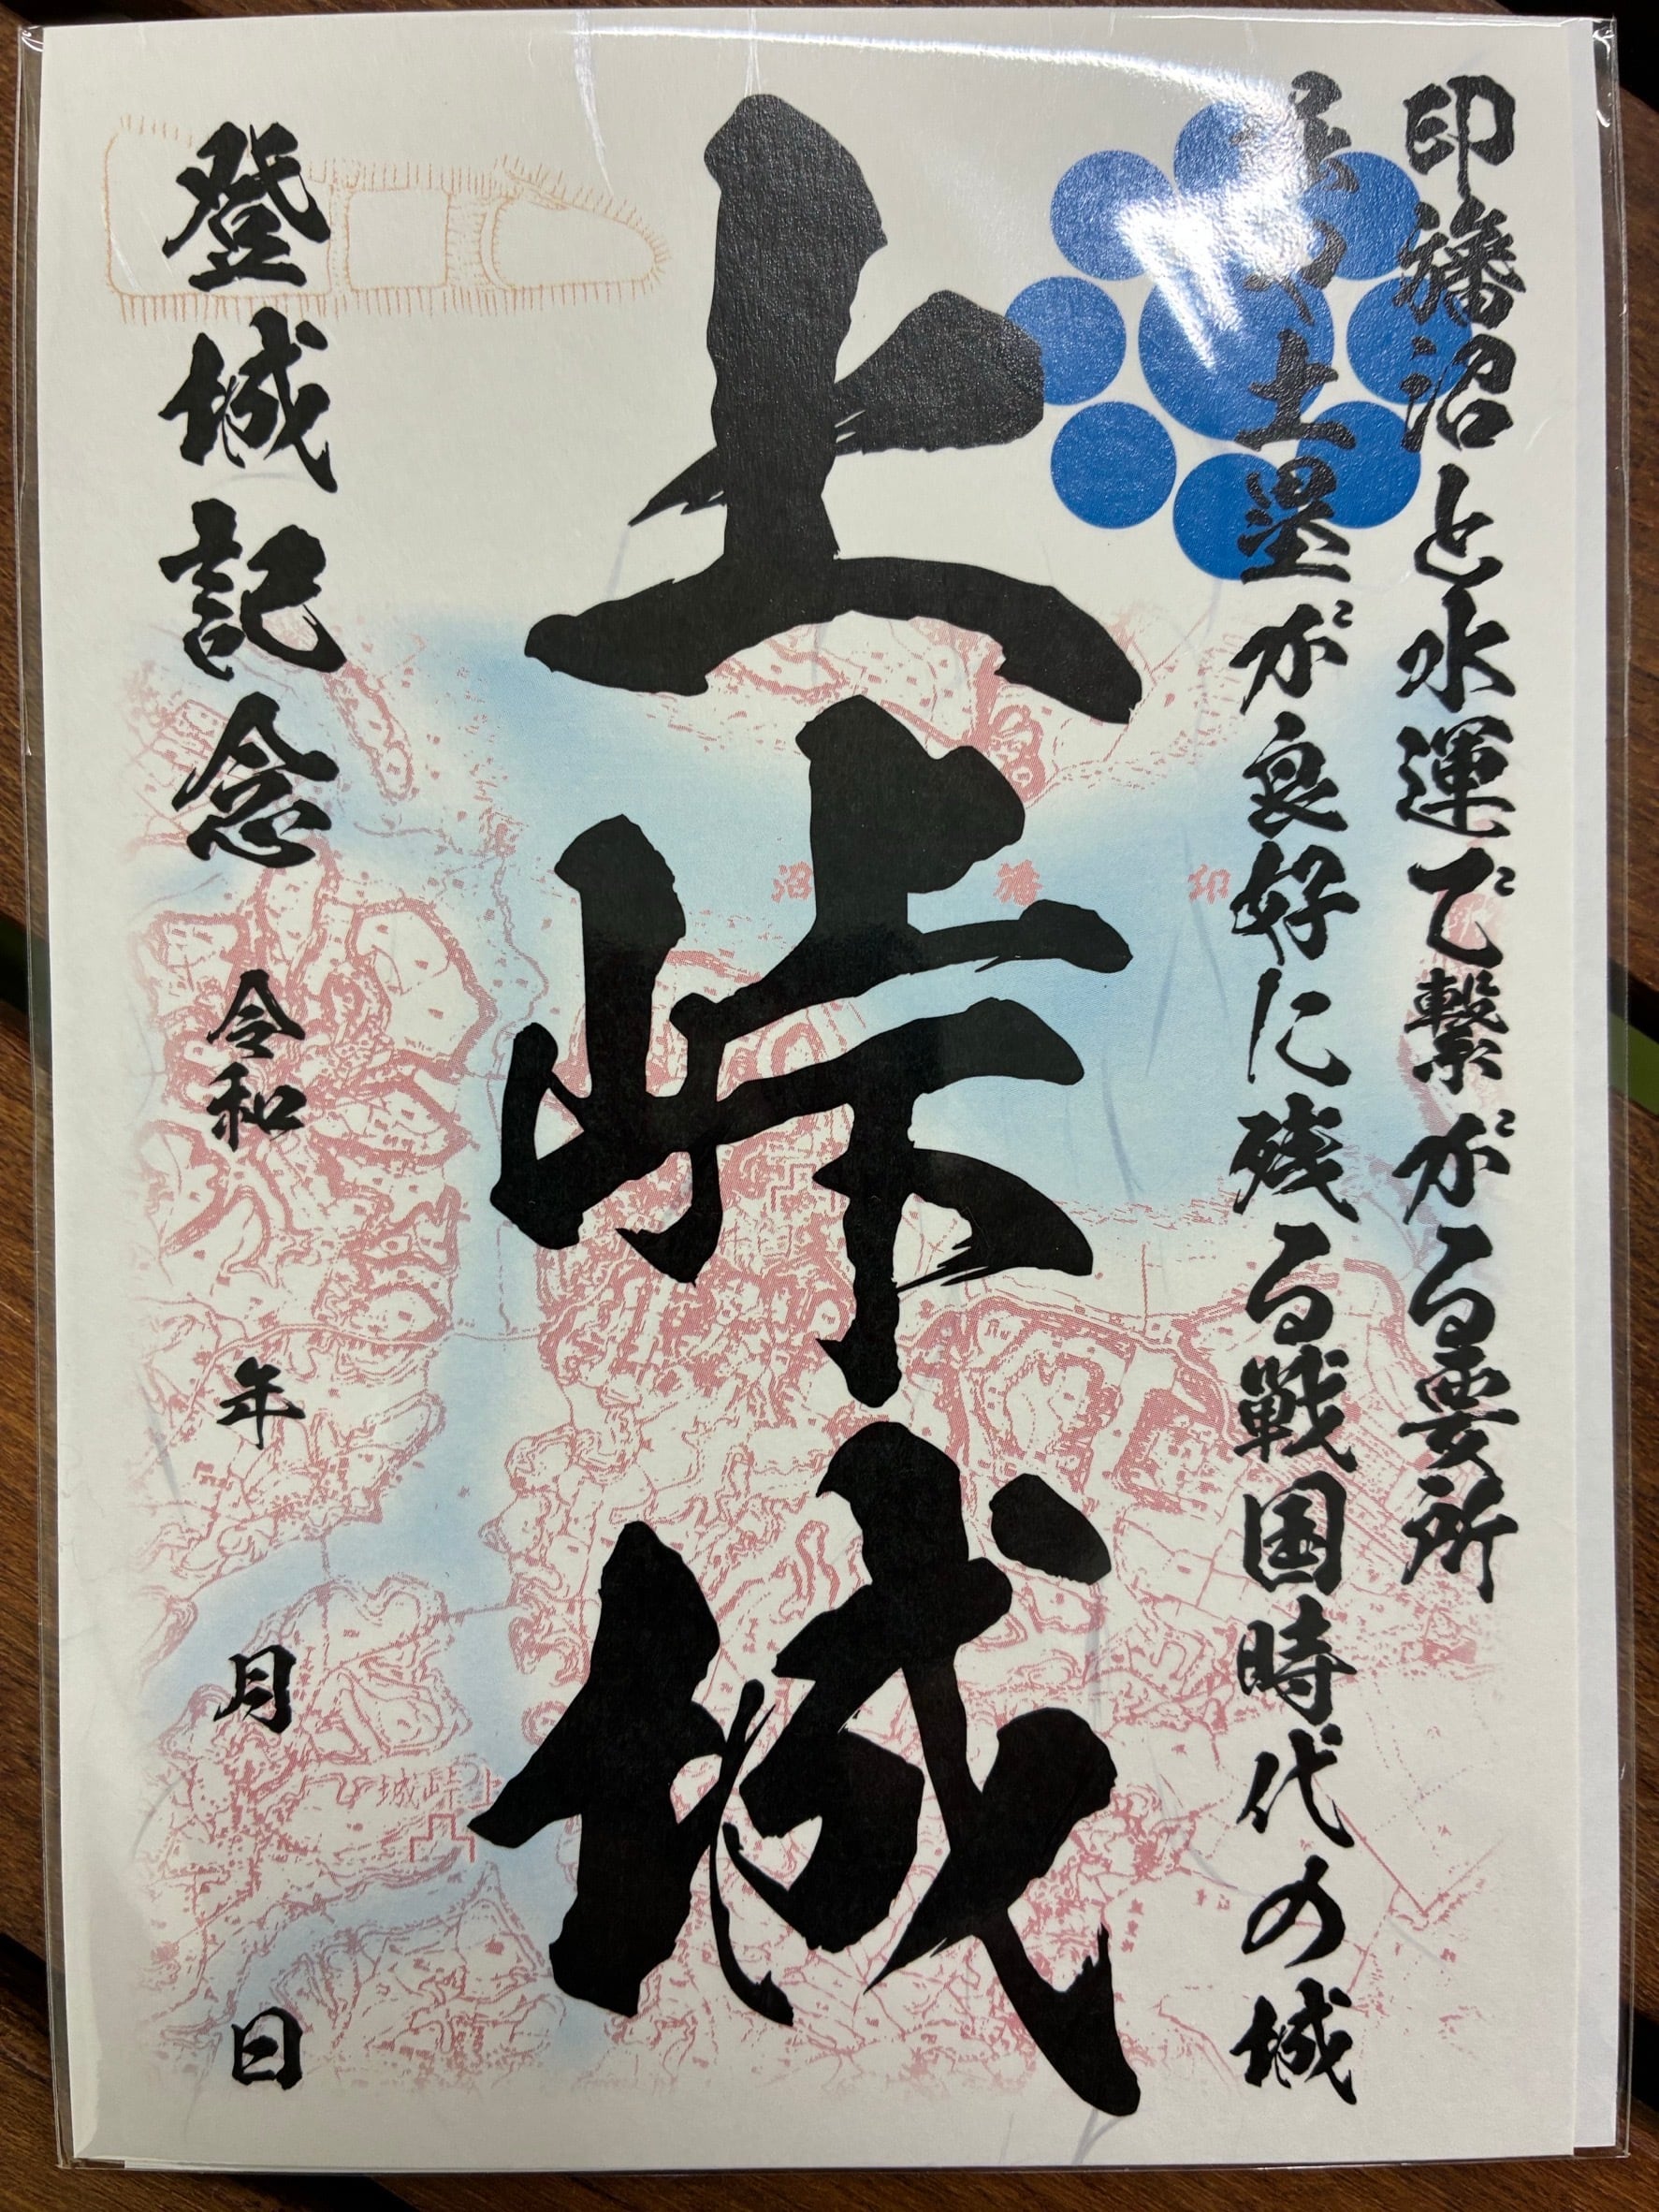 印旛沼と水運で繋がる要所
堀や土塁が良好に残る戦国時代の城
上峠城
登城記念
令和 年 月 日
印旛沼
上峠城